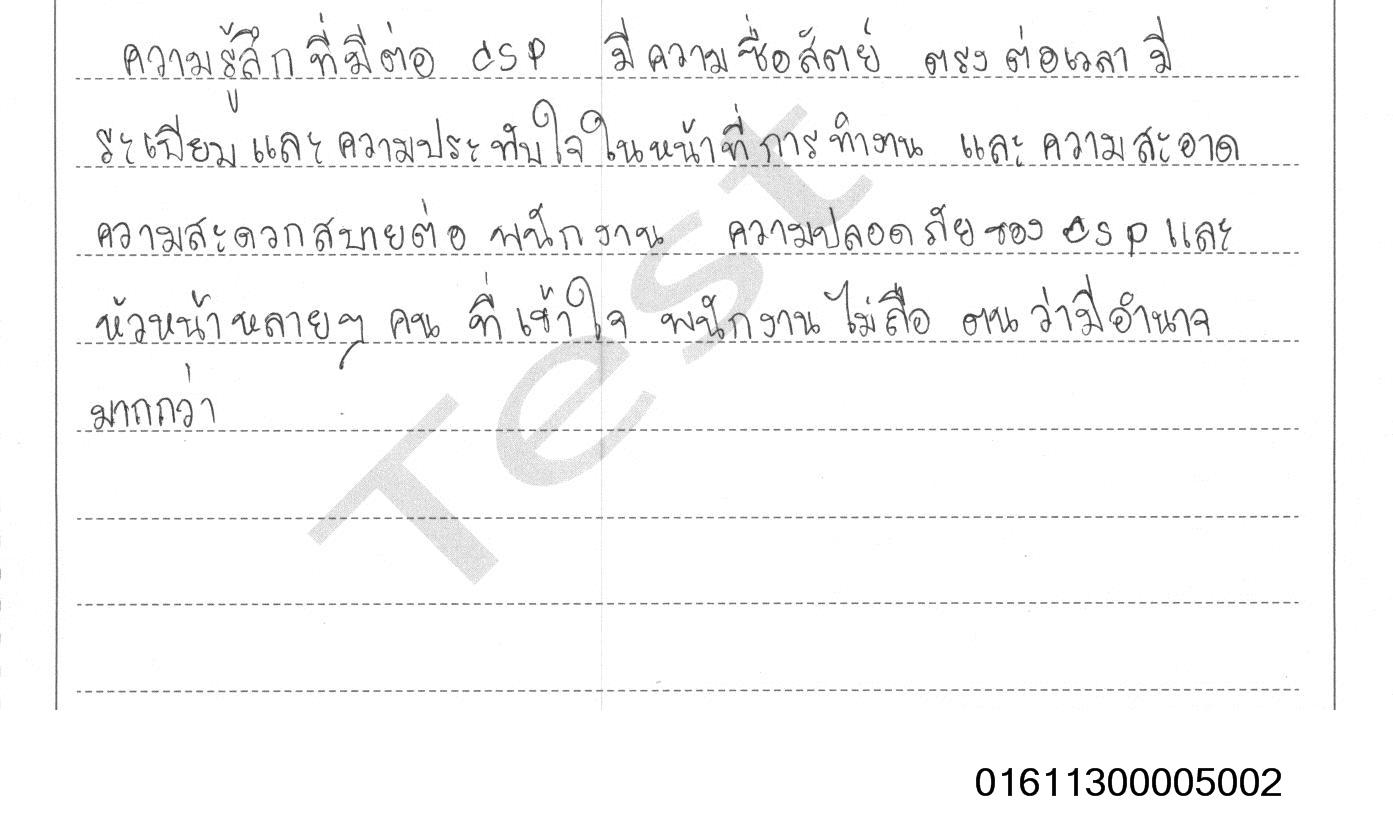 ความรู้สึกที่มีต่อ csp มีความซื่อสัตย์ ตรงต่อเวลา มี
ระเบียบและความประทับใจในหน้าที่การทำงาน และความสะอาด
ความสะดวกสบายต่อพนักงาน ความปลอดภัยของ csp และ
หัวหน้าหลายๆ คน ที่เข้าใจ พนักงานไม่ถือ ตนว่ามีอำนาจ
มากกว่า
Test
01611300005002